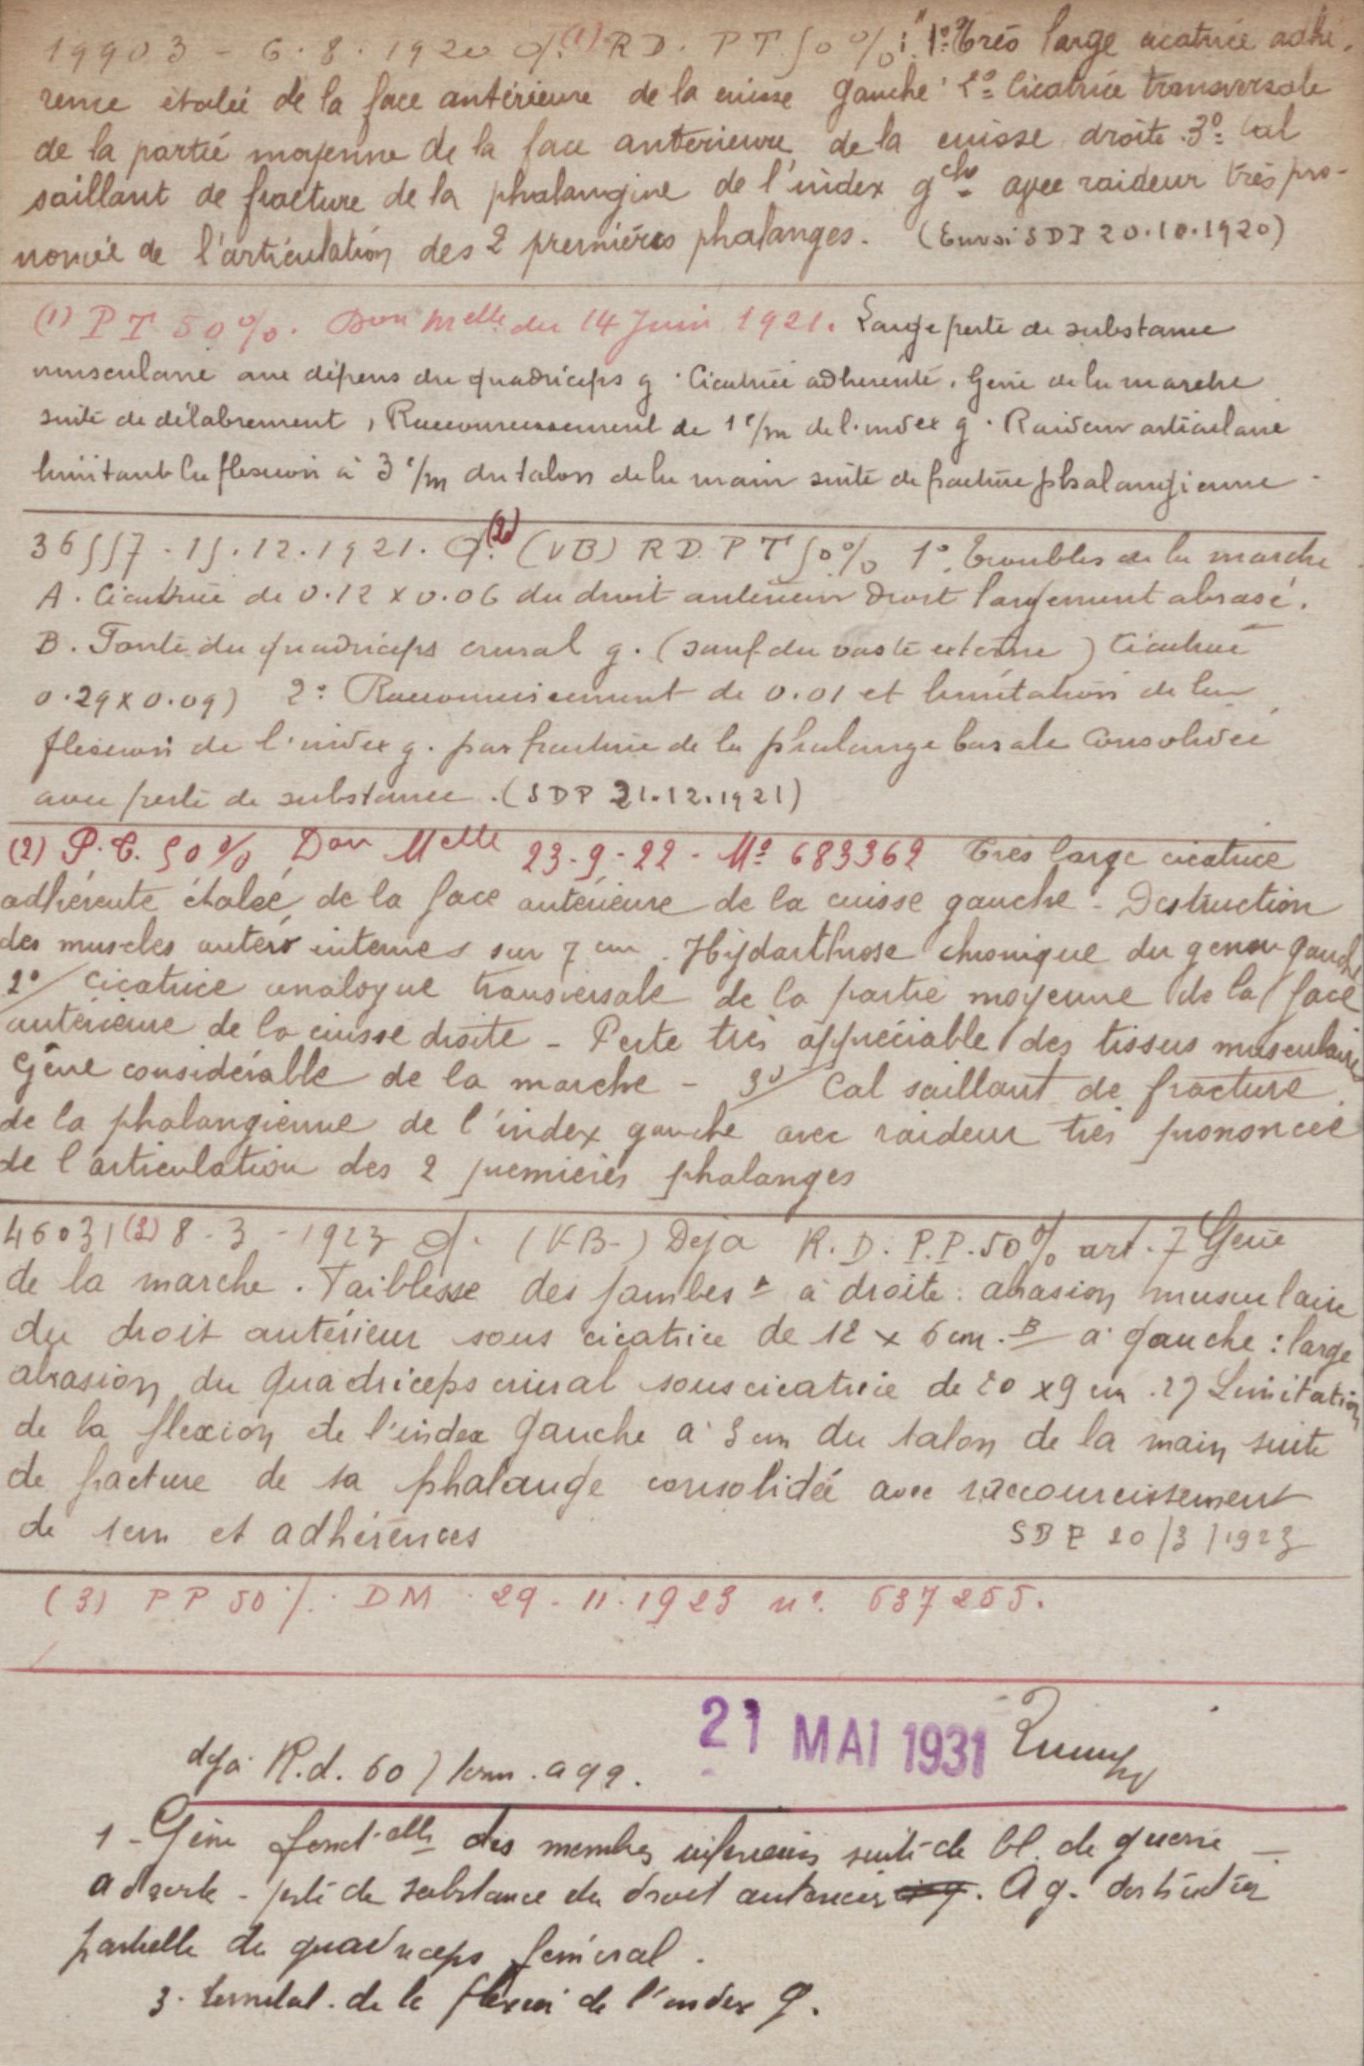 19903 - 6.8.1920 d. (1) R D. P T 50 % : "1º Très large cicatrice adhé-
rente étalée de la face antérieure de la cuisse gauche 2º Cicatrice transversale
de la partie moyenne de la face antérieure de la cuisse droite 3º Cal
saillant de fracture de la phalangine de l'index gche avec raideur très pro-
noncée de l'articulation des 2 premières phalanges. (Envoi SDP 20.10.1920)
(1) P T 50 %. Don Melle du 14 Juin 1921. Large perte de substance
musculaire aux dépens du quadriceps g. Cicatrice adhérente. Gêne de la marche
suite de délabrement, Raccourcissement de 1 c/m de l'index g. Raideur articulaire
limitant la flexion à 3 c/m du talon de la main suite de fracture phalangienne.
36557 . 15.12.1921. d. (2) (VB) R D. P T 50 % 1º Troubles de la marche
A. Cicatrice de 0.12 x 0.06 du droit antérieur droit largement abrasé.
B. Fonte du quadriceps crural g. (sauf du vaste externe) Cicatrice
0.29 x 0.09) 2º Raccourcissement de 0.01 et limitation de la
flexion de l'index g. par fracture de la phalange basale consolidée
avec perte de substance. (SDP 21.12.1921)
(2) P.T. 50 % Don Melle 23-9-22 - Nº 683362 Très large cicatrice
adhérente étalée de la face antérieure de la cuisse gauche - Destruction
des muscles antéro internes sur 7 cm. Hydarthrose chronique du genou gauche
2º/ Cicatrice analogue transversale de la partie moyenne de la face
antérieure de la cuisse droite - Perte très appréciable des tissus musculaires
Gêne considérable de la marche - 3º/ Cal saillant de fracture
de la phalangienne de l'index gauche avec raideur très prononcée
de l'articulation des 2 premières phalanges
46031 (3) 8-3-1923 d. (VB-) Déjà R.D. P.P. 50 % art. 7 Gêne
de la marche. Faiblesse des jambes A à droite : abrasion musculaire
du droit antérieur sous cicatrice de 12 x 6 cm. B à gauche : large
abrasion du quadriceps crural sous cicatrice de 20 x 9 cm. 2) Limitation
de la flexion de l'index gauche à 3 cm du talon de la main suite
de fracture de sa phalange consolidée avec raccourcissement
de 1cm et adhérences SDP 20/3/1923
(3) P P 50 %. DM. 29-11-1923 nº. 637255.
21 MAI 1931
déjà R.d. 60 ) agg.
1 - Gêne fonctelle des membres inférieurs suite de bl. de guerre -
A droite - perte de substance du droit antérieur. A g. destruction
partielle du quadriceps fémoral.
3. Limitat. de la flexion de l'index g.